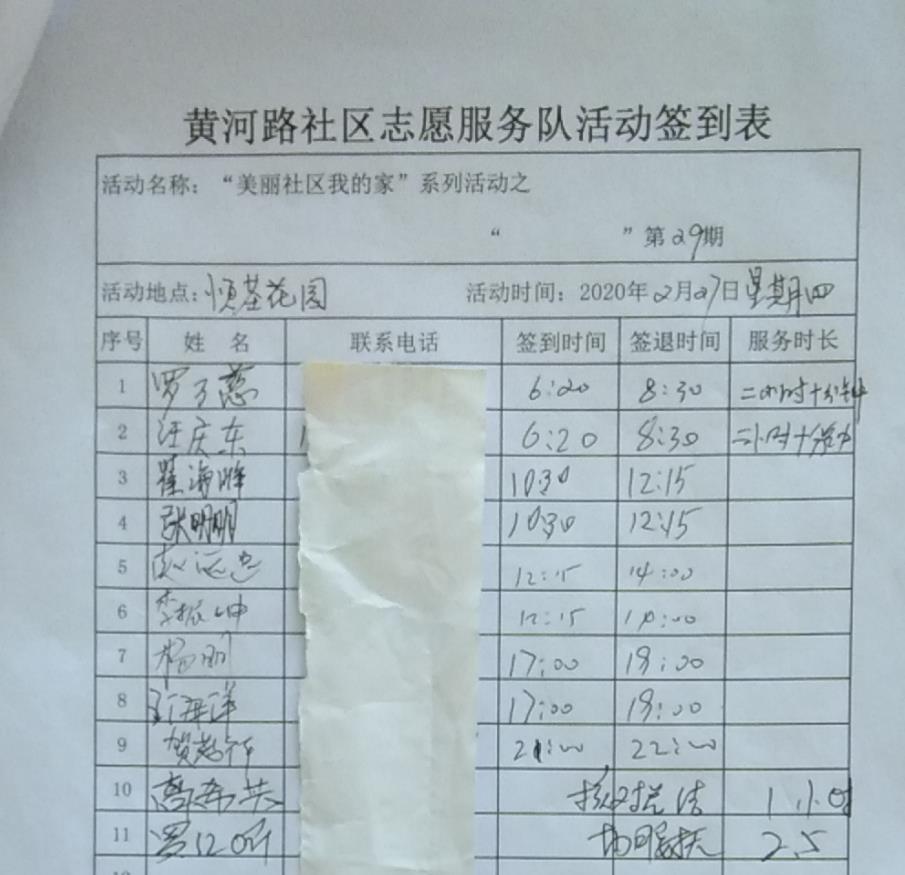 黄河路社区志愿服务队活动签到表
活动名称：“美丽社区我的家”系列活动之
“ ”第29期
活动地点：恒基花园 活动时间：2020年2月27日星期四
序号 姓名 联系电话 签到时间 签退时间 服务时长
1 罗子慈 6:20 8:30 二小时十分钟
2 汪庆东 6:20 8:30 二小时十分
3 翟海峰 1030 12:15
4 张明明 1030 12:15
5 12:15 14:00
6 李振坤 12:15 14:00
7 杨丽 17:00 19:00
8 17:00 19:00
9 21:00 22:00
10 1小时
11 2.5